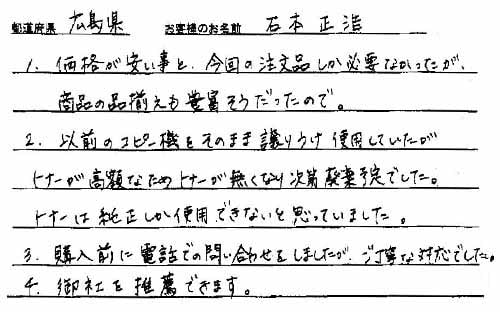 都道府県 広島県 お客様のお名前 石本 正浩
1. 価格が安い事と、今回の注文品しか必要なかったが、
商品の品揃えも豊富そうだったので。
2. 以前のコピー機をそのまま譲りうけ使用していたが
トナーが高額なためトナーが無くなり次第廃棄予定でした。
トナーは純正しか使用できないと思っていました。
3. 購入前に電話での問い合わせをしましたが、ご丁寧な対応でした。
4. 御社を推薦できます。